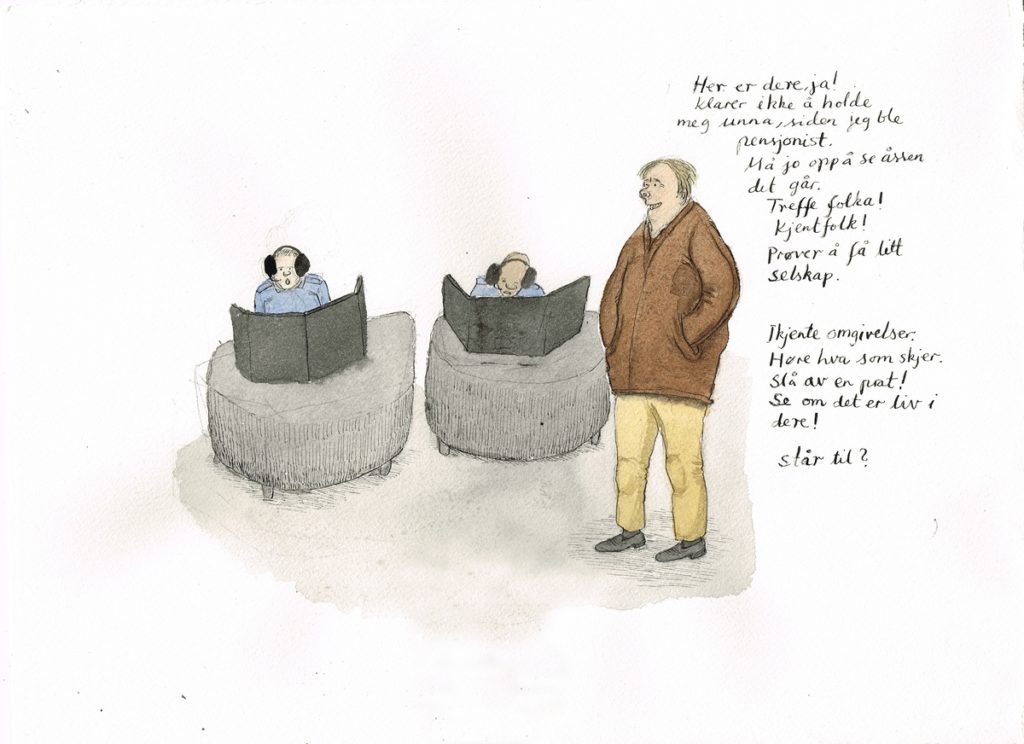 Her er dere, ja!
Klarer ikke å holde
meg unna, siden jeg ble
pensjonist.
Må jo opp å se åssen
det går.
Treffe folka!
Kjentfolk!
Prøver å få litt
selskap.
I kjente omgivelser.
Høre hva som skjer.
Slå av en prat!
Se om det er liv i
dere!
Står til?